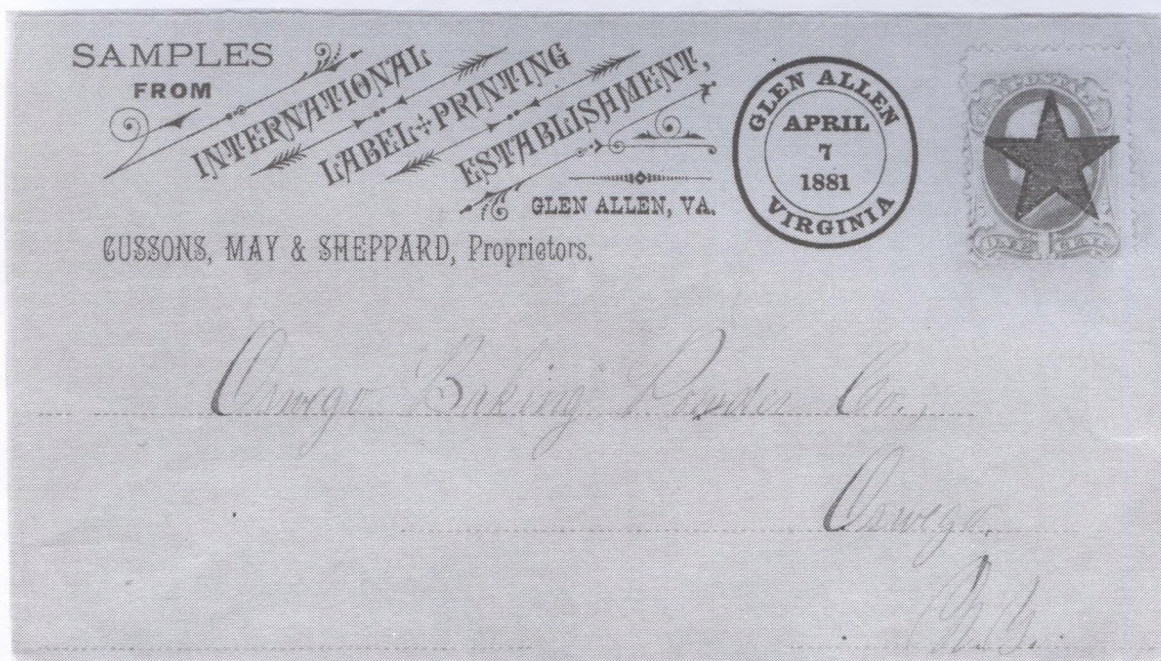 SAMPLES
FROM
INTERNATIONAL
LABEL PRINTING
ESTABLISHMENT,
GLEN ALLEN, VA.
CUSSONS, MAY & SHEPPARD, Proprietors.
GLEN ALLEN
APRIL
7
1881
VIRGINIA
ONE CENT
Oswego Baking Powder Co.,
Oswego,
N.Y.